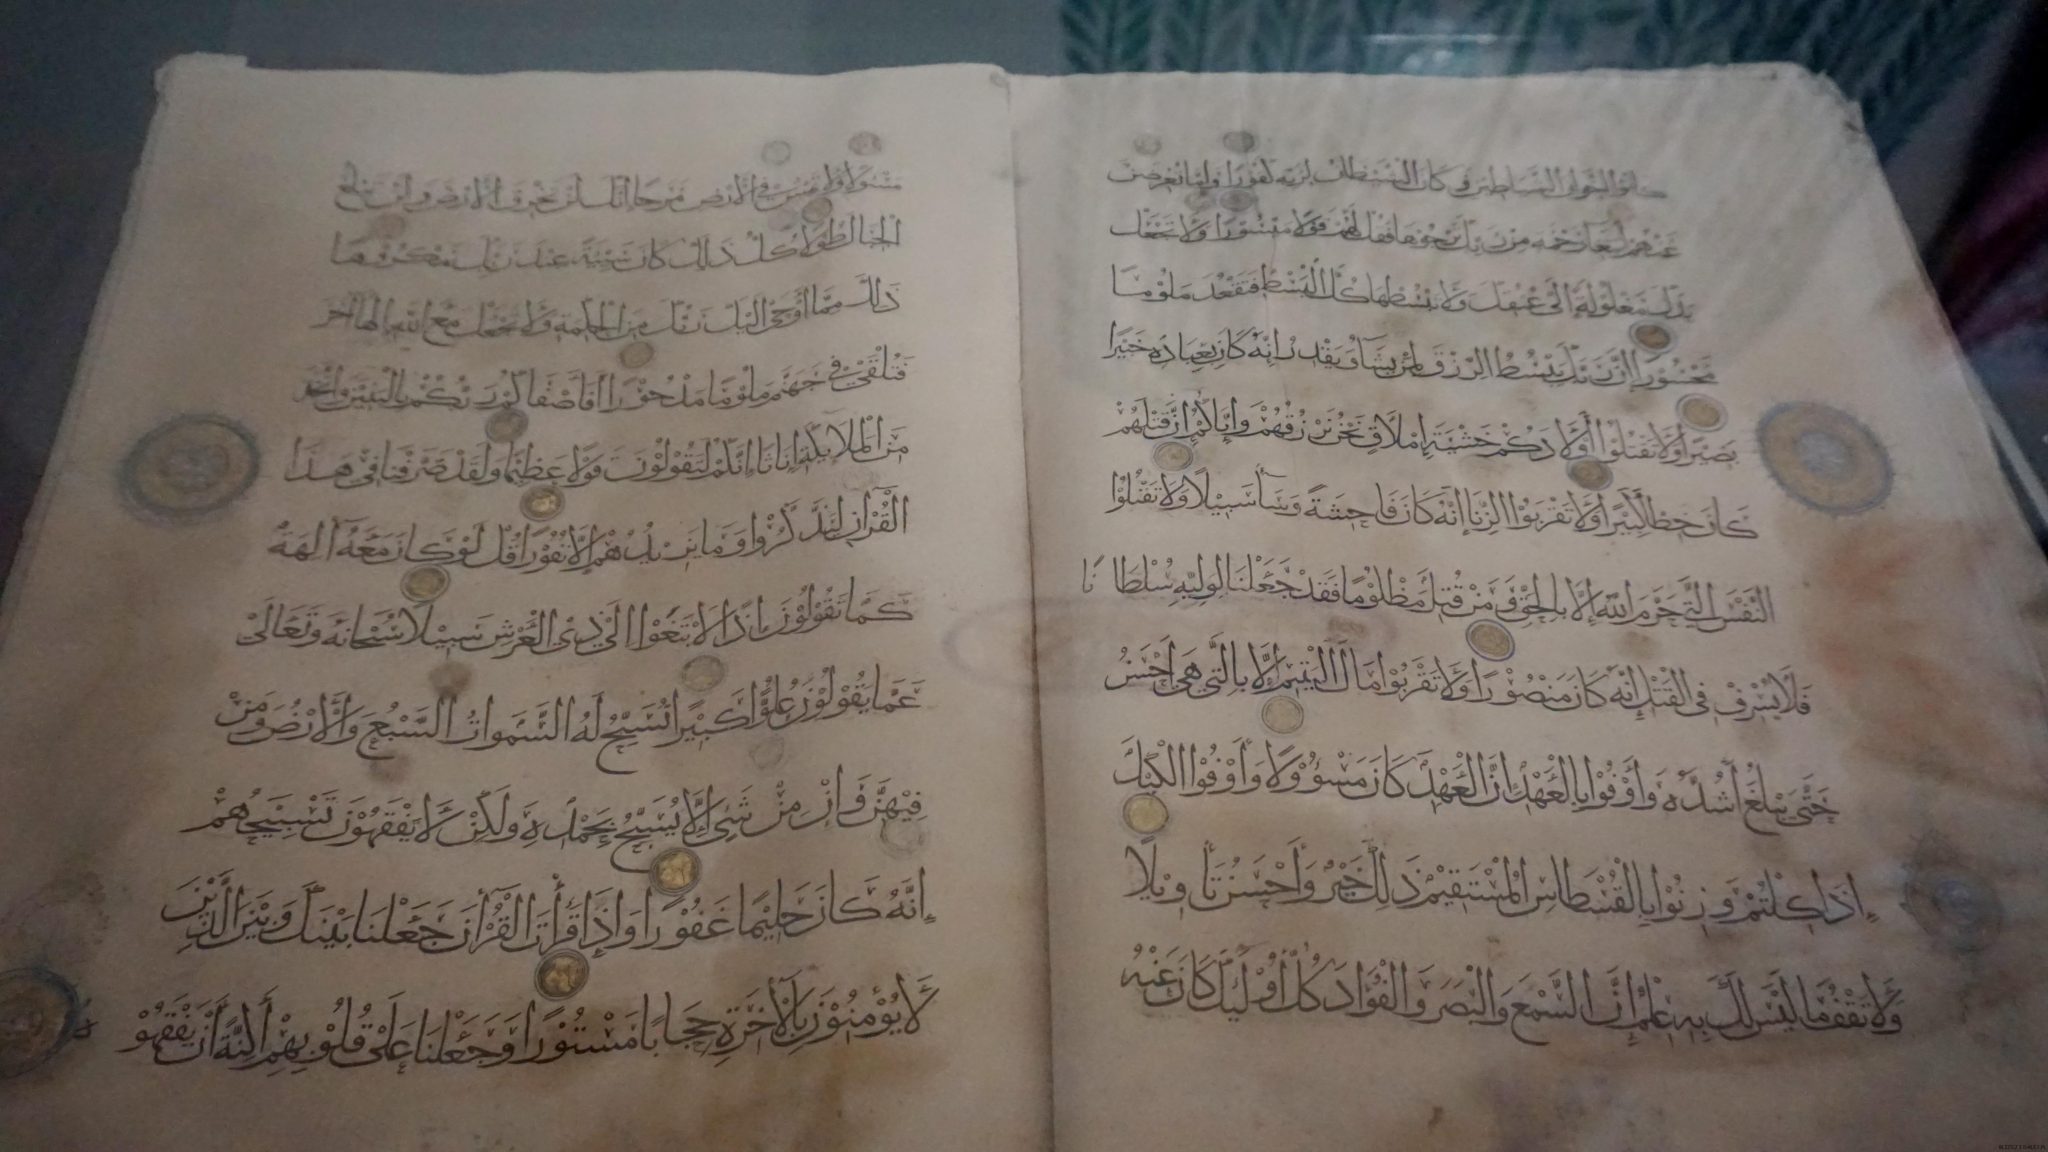 كانوا اخوان الشياطين وكان الشيطان لربه كفورا واما تعرضن
عنهم ابتغاء رحمة من ربك ترجوها فقل لهم قولا ميسورا ولا تجعل
يدك مغلولة الى عنقك ولا تبسطها كل البسط فتقعد ملوما
محسورا ان ربك يبسط الرزق لمن يشاء ويقدر انه كان بعباده خبيرا
بصيرا ولا تقتلوا اولادكم خشية املاق نحن نرزقهم واياكم ان قتلهم
كان خطأ كبيرا ولا تقربوا الزنا انه كان فاحشة وساء سبيلا ولا تقتلوا
النفس التي حرم الله الا بالحق ومن قتل مظلوما فقد جعلنا لوليه سلطانا
فلا يسرف في القتل انه كان منصورا ولا تقربوا مال اليتيم الا بالتي هي احسن
حتى يبلغ اشده واوفوا بالعهد ان العهد كان مسؤولا واوفوا الكيل
اذا كلتم وزنوا بالقسطاس المستقيم ذلك خير واحسن تأويلا
ولا تقف ما ليس لك به علم ان السمع والبصر والفؤاد كل اولئك كان عنه
مسؤولا ولا تمش في الارض مرحا انك لن تخرق الارض ولن تبلغ
الجبال طولا كل ذلك كان سيئة عند ربك مكروها
ذلك مما اوحى اليك ربك من الحكمة ولا تجعل مع الله الها آخر
فتلقى في جهنم ملوما مدحورا افأصفاكم ربكم بالبنين واتخذ
من الملائكة اناثا انكم لتقولون قولا عظيما ولقد صرفنا في هذا
القرآن ليذكروا وما يزيدهم الا نفورا قل لو كان معه آلهة
كما تقولون اذا لابتغوا الى ذي العرش سبيلا سبحانه وتعالى
عما يقولون علوا كبيرا تسبح له السموات السبع والارض ومن
فيهن وان من شيء الا يسبح بحمده ولكن لا تفقهون تسبيحهم
انه كان حليما غفورا واذا قرأت القرآن جعلنا بينك وبين الذين
لا يؤمنون بالآخرة حجابا مستورا وجعلنا على قلوبهم اكنة ان يفقهوه